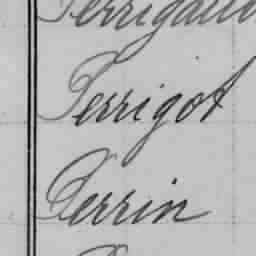 Perrigot
Perrin